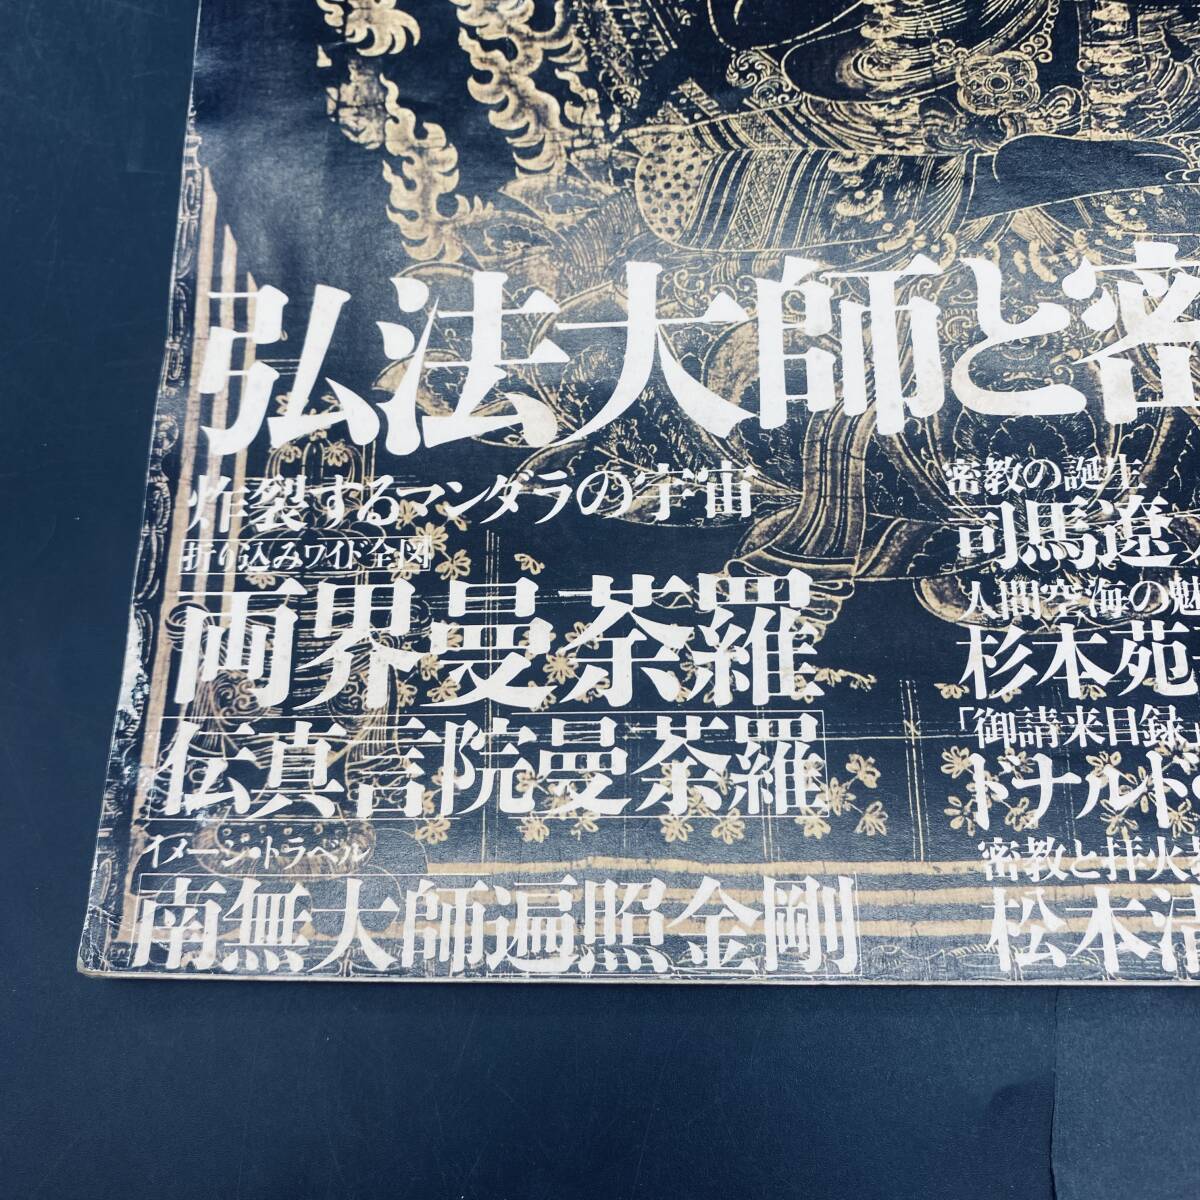 弘法大師と密
炸裂するマンダラの宇宙
折り込みワイド全図
両界曼荼羅
伝真言院曼荼羅
イメージ・トラベル
南無大師遍照金剛
密教の誕生
司馬遼
人間空海の魅
杉本苑
「御請来目録」
ドナルド・
密教と拝火
松本清